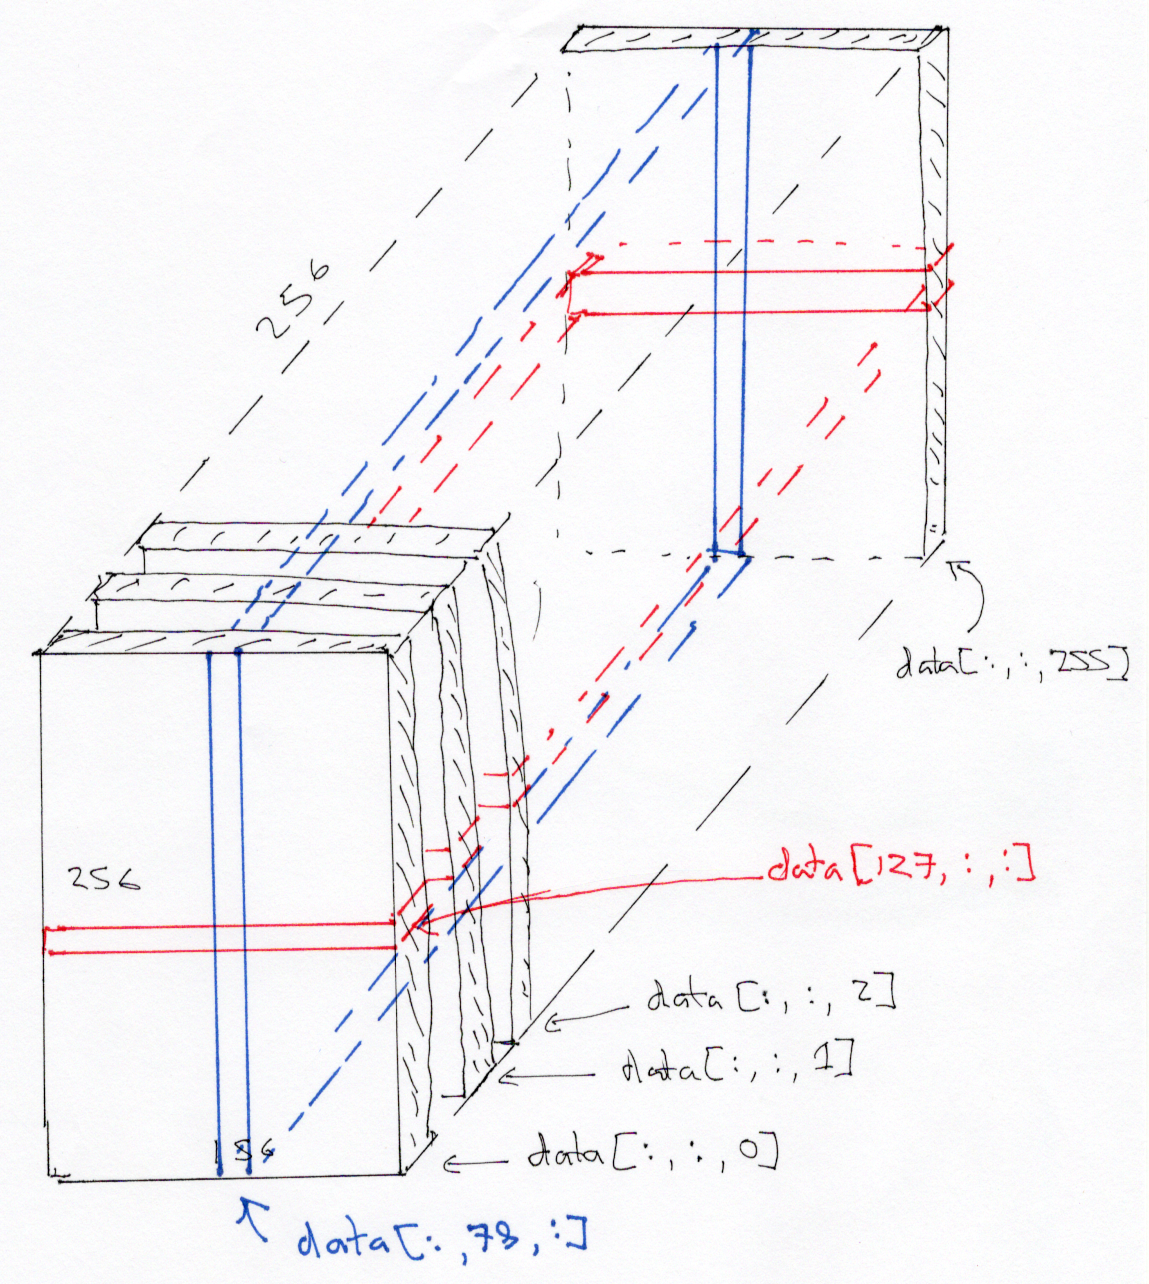 256
data[:,:,255]
256
data[127,:,:]
data[:,:,2]
data[:,:,1]
data[:,:,0]
156
data[:,78,:]